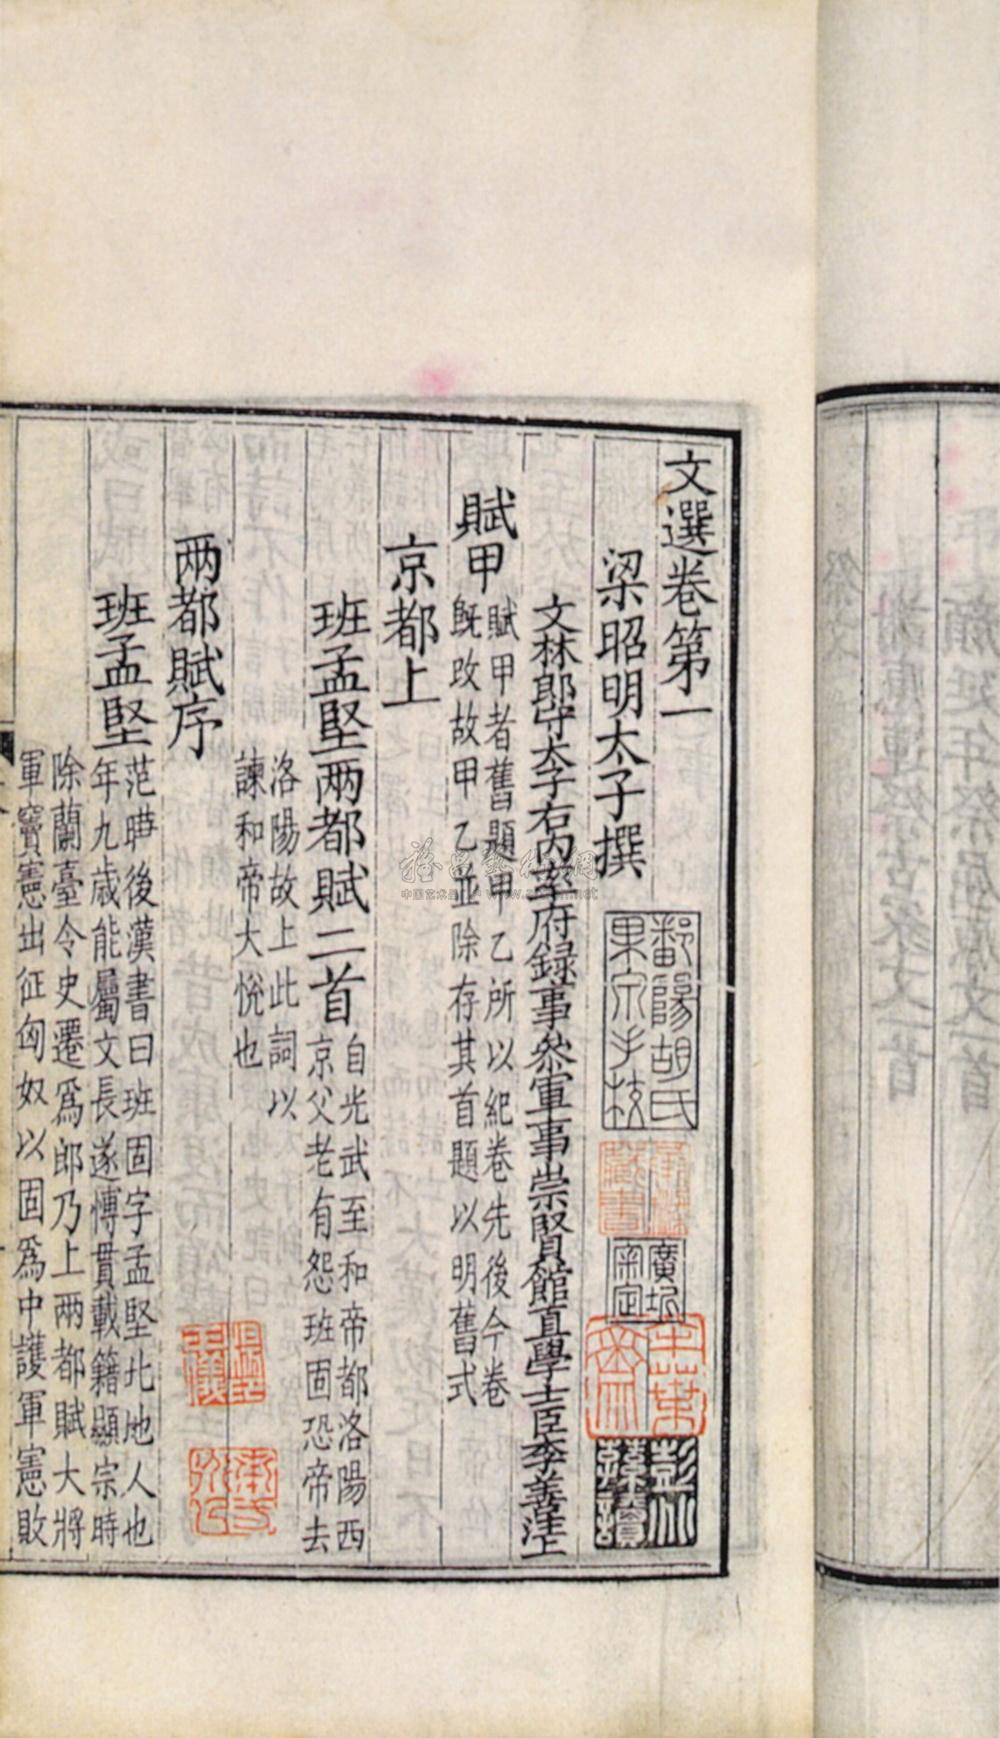 文選卷第一
梁昭明太子撰
文林郎守太子右内率府録事參軍事崇賢館直學士臣李善注上
賦甲
賦甲者舊題甲乙所以紀卷先後今卷
既改故甲乙並除存其首題以明舊式
京都上
班孟堅兩都賦二首
自光武至和帝都洛陽西
京父老有怨班固恐帝去
洛陽故上此詞以
諫和帝大悅也
兩都賦序
班孟堅
范曄後漢書曰班固字孟堅北地人也
年九歲能屬文長遂博貫載籍顯宗時
除蘭臺令史遷爲郎乃上兩都賦大將
軍竇憲出征匈奴以固爲中護軍憲敗
鄱陽胡氏
果泉手校
藏書
中国艺术品